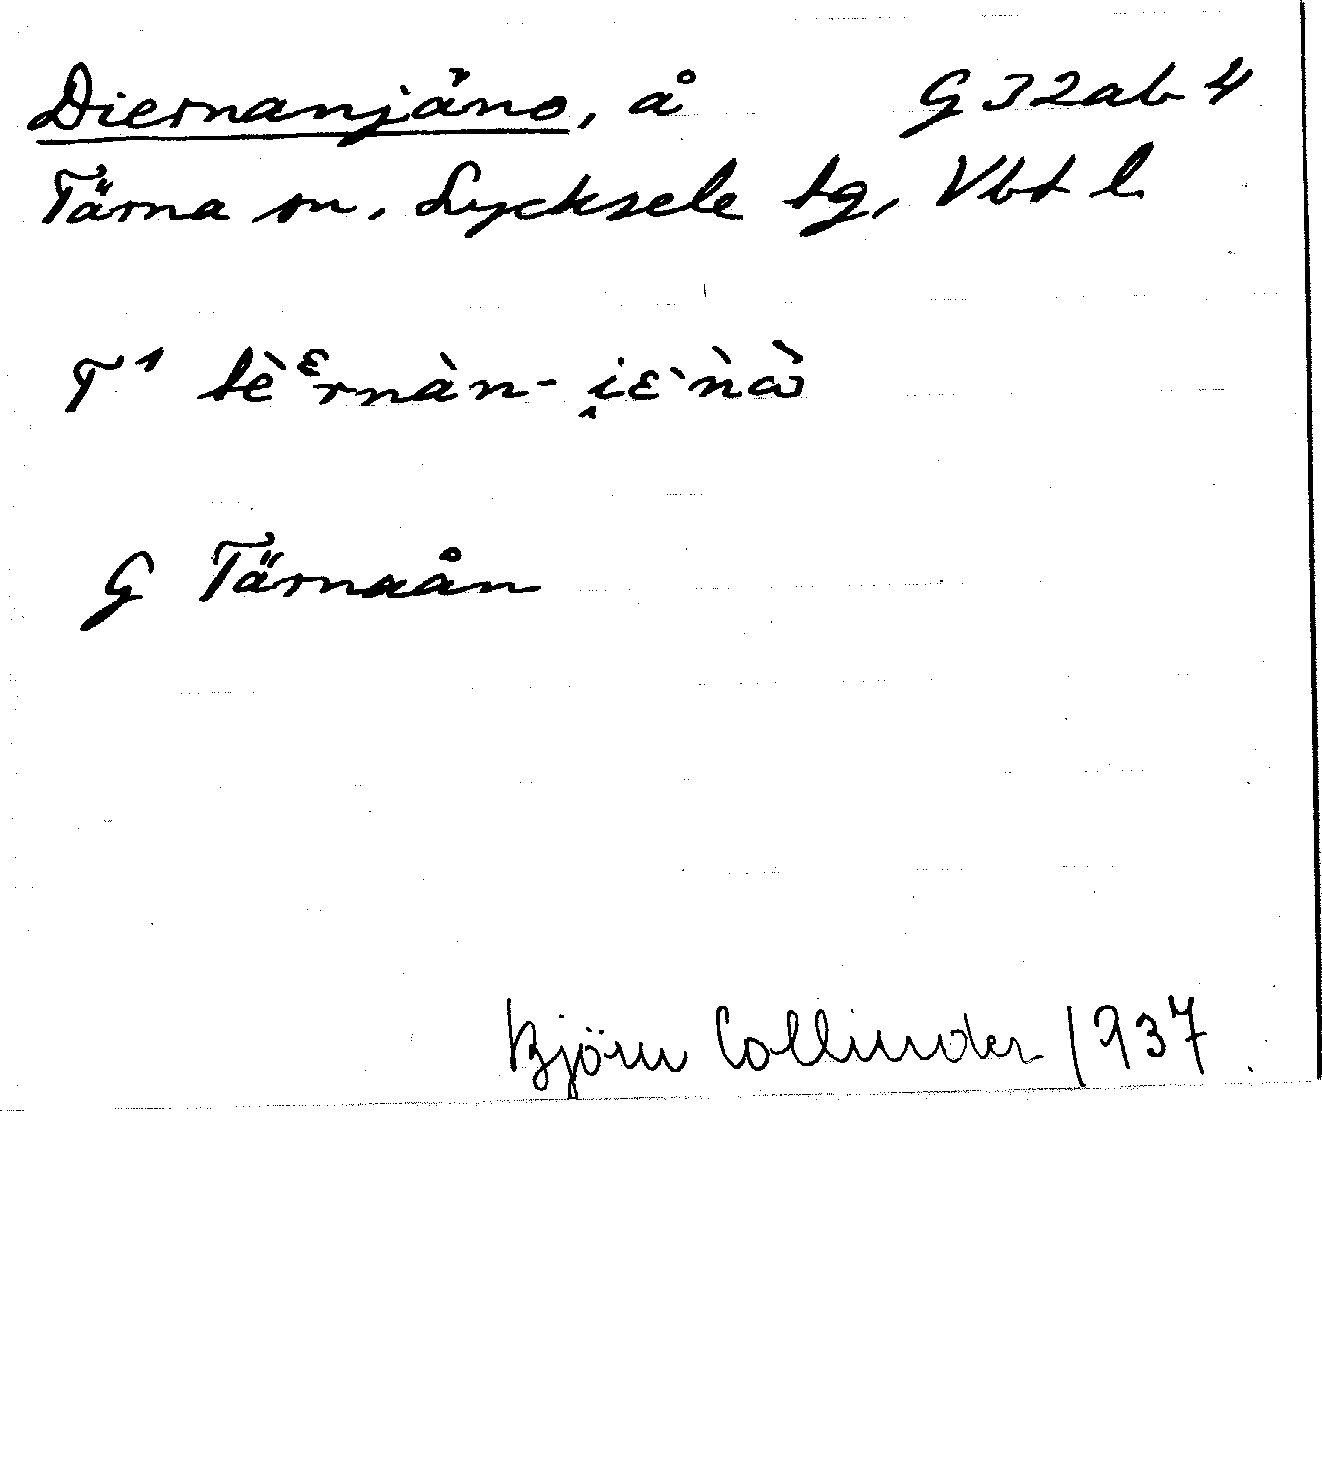 Diernanjåno, å G32ab4
Tärna sn, Lycksele lg, Vbt l
T¹ tèᵋrnàn-i̭ɛ̀ǹɷ̀
G Tärnaån
Björn Collinder 1937